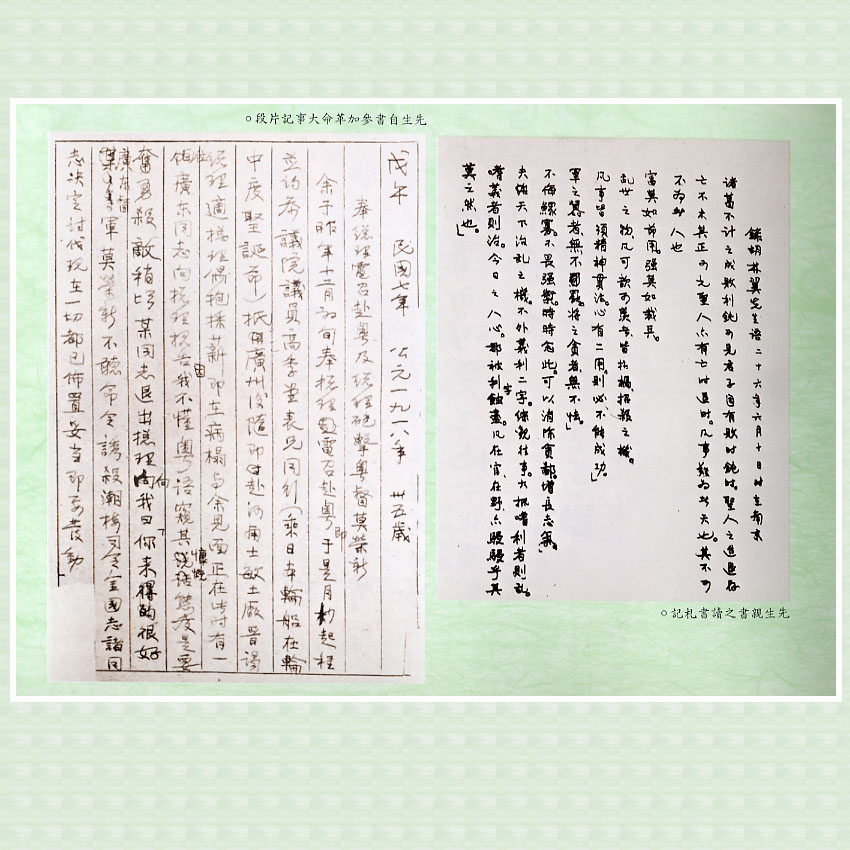 先生自書參加革命大事記片段。
戊午 民國七年 公元一九一八年 卅五歲
奉總理電召赴粵及總理砲擊粵督莫榮新
余于昨年十二月初旬奉總理電召赴粵即于是月杪起程
並約參議院議員高季堂表兄同行(乘日本輪船在輪
中度聖誕節)抵廣州後隨即赴河南士敏土廠晉謁
總理適總理偶抱採薪即在病榻与余見面正在此時有一
位廣东同志向總理報告我不懂粵語窺其慷慨態度是要
奮勇殺敵稍待某同志退出總理向我曰「你来得的很好
廣东督軍莫榮新不聽命令誘殺潮梅司令金國志諸同
志決定討伐現在一切都已佈置妥当即要發動
錄胡林翼先生語二十六年六月十日時在南京
諸葛不計之成敗利鈍可見君子固有敗時鈍時聖人之進退存
亡不失其正可見聖人亦有亡時退時。凡事難為者天也。其不可
不為者人也
富莫如節用。强莫如裁兵。
亂世之物凡可歆可羨者皆招禍招殺之機。
凡事皆須精神貫注。心有二用。則必不能成功。」
軍之者無不。將之貪者無不怯。」
不侮鰥寡。不畏强禦。時時念此。可以消除貪鄙。增長志氣。」
夫天下治乱之機。不外義利二字。你觀往事。大抵嗜利者則乱。
嗜義者則治。今日之人心。都被利蝕盡。凡在官在野亦駸駸乎其
莫之然也。」
先生親書之讀書札記。